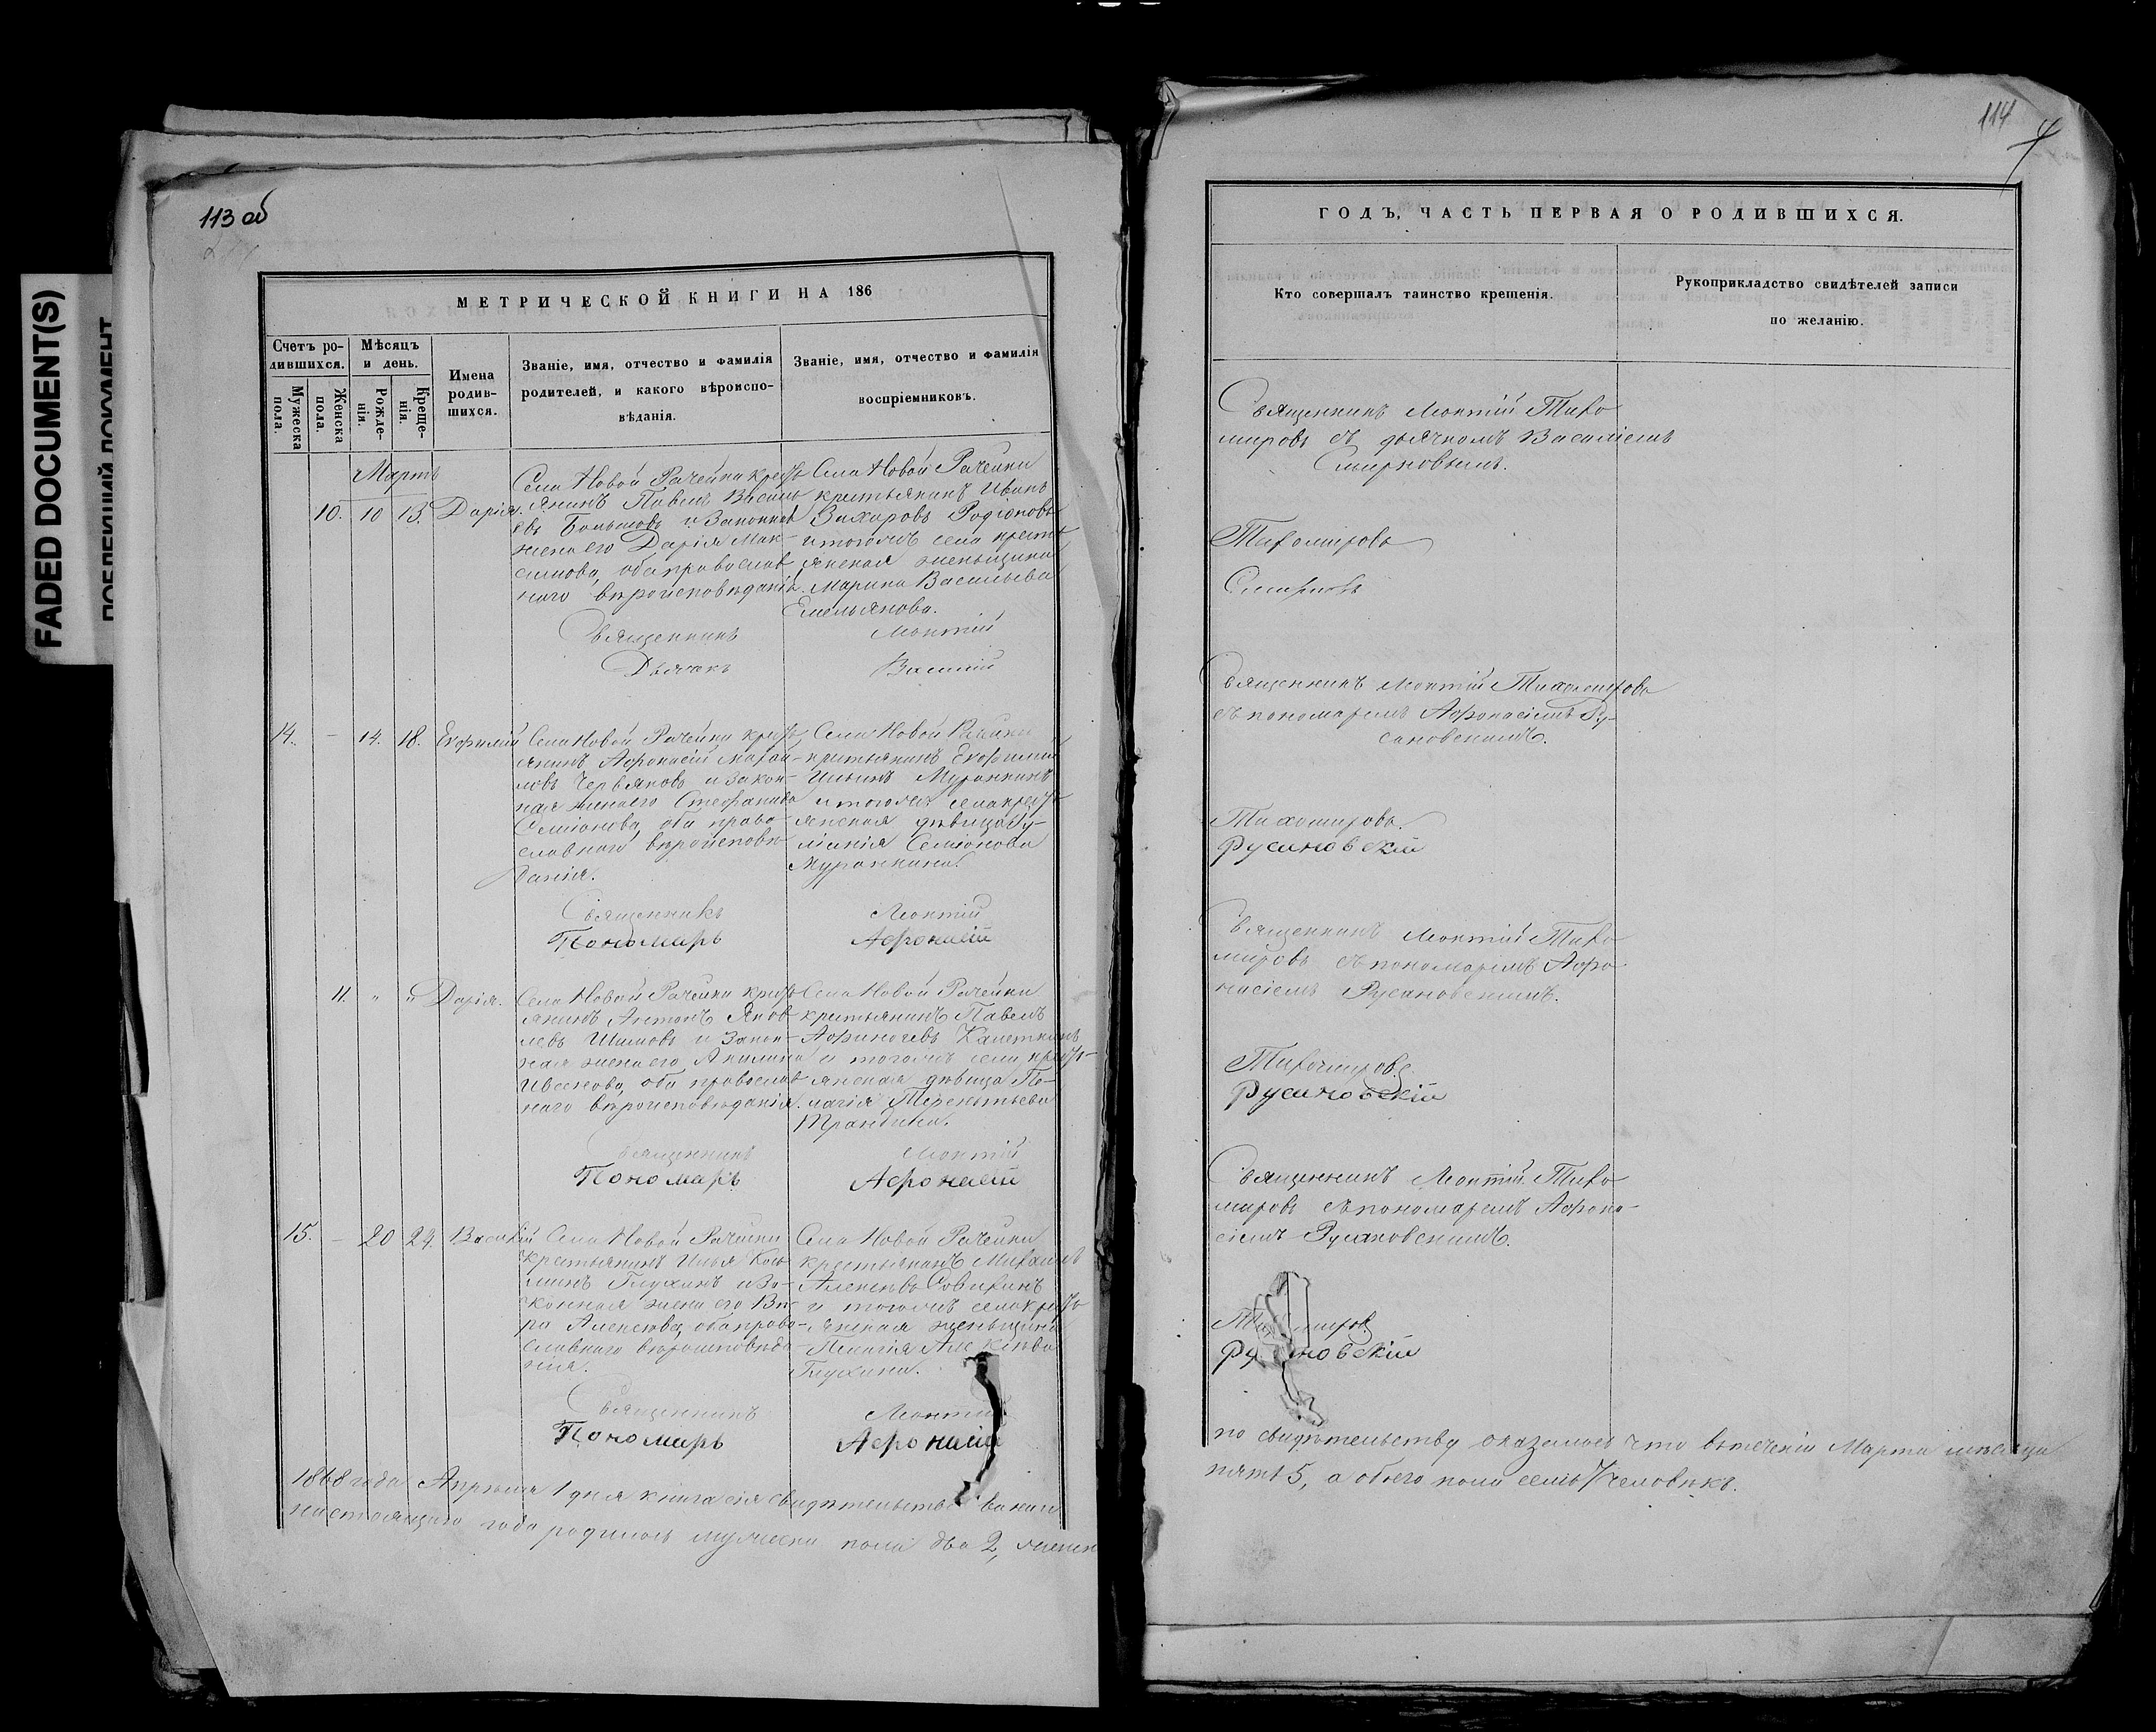 FADED DOCUMENT(S)
113 об
МЕТРИЧЕСКОЙ КНИГИ НА 186
Счетъ ро-
дившихся.
Мужеска
пола.
Женска
пола.
Мѣсяцъ
и день.
Рожде-
нія.
Креще-
нія.
Имена
родив-
шихся.
Званіе, имя, отчество и фамилія
родителей, и какого вѣроиспо-
вѣданія.
Званіе, имя, отчество и фамилія
воспріемниковъ.
Мартъ
10. 10 13. Дарія.
Села Новой Рачейки кресть
янинъ Павелъ Василь
евъ Большовъ и Законная
жена его Дарія Мак-
симова, оба православ
наго вѣроисповѣданія.
Села Новой Рачейки
крестьянинъ Иванъ
Захаровъ Родіоновъ
и тогожъ села кресть
янская женьщина
Марина Васильева
Емельянова.
Священникъ Леонтій
Дьячекъ Василій
14. – 14. 18. Евфимій
Села Новой Рачейки кресть
янинъ Афонасій Михай-
ловъ Червяковъ и закон-
ная жена его Стефанида
Семіонова, оба право-
славнаго вѣроисповѣ
данія.
Села Новой Рачейки
крестьянинъ Евфимій
Ильинъ Муранкинъ
и тогожъ села кресть
янская дѣвица Лу-
Семіонова
Муранкина.
Священникъ Леонтій
Пономарь Афонасій
11. " " Дарія.
Села Новой Рачейки кресть
янинъ Антонъ Яков
левъ Шиловъ и Закон-
ная жена его Акилина
Ивонова, оба православ
наго вѣроисповѣданія.
Села Новой Рачейки
крестьянинъ Павелъ
и тогожъ села кресть-
янская дѣвица Пе-
лагія Терентьева
Священникъ Леонтій
Пономарь Афонасій
15. – 20 24. Василій
Села Новой Рачейки
крестьянинъ Илья Козь
минъ Глухинъ и За-
конная жена его Вѣ-
ра Алексѣва, оба право-
славнаго вѣроисповѣда
нія.
Села Новой Рачейки
крестьянинъ Михаилъ
Алексѣвъ Совихинъ
и тогожъ села кресть
янская женьщина
Пелагія Алексѣва
Глухина.
Священникъ Леонтій
Пономарь Афонасій
1868 года Апрѣля 1 дня книга сія свидѣтельствована и
настоящаго года родилось мужеска пола два 2, женск
114
ГОДЪ, ЧАСТЬ ПЕРВАЯ О РОДИВШИХСЯ.
Кто совершалъ таинство крещенія.
Рукоприкладство свидѣтелей записи
по желанію.
Священникъ Леонтій Тихо
мировъ съ дьячкомъ Василіемъ
Смирновымъ.
Тихомировъ
Смирновъ
Священникъ Леонтій Тихомировъ
съ пономаремъ Афонасіемъ Ру-
сановскимъ.
Тихомировъ.
Русановскій
Священникъ Леонтій Тихо
мировъ съ пономаремъ Афо
насіемъ Русановскимъ.
Тихомировъ
Русановскій
Священникъ Леонтій Тихо
мировъ съ пономаремъ Афона-
сіемъ Русановскимъ.
Тихомировъ
Русановскій
по свидѣтельству оказалось что въ теченіи Марта мѣсяца
пять 5, а обоего пола семь 7 человѣкъ.